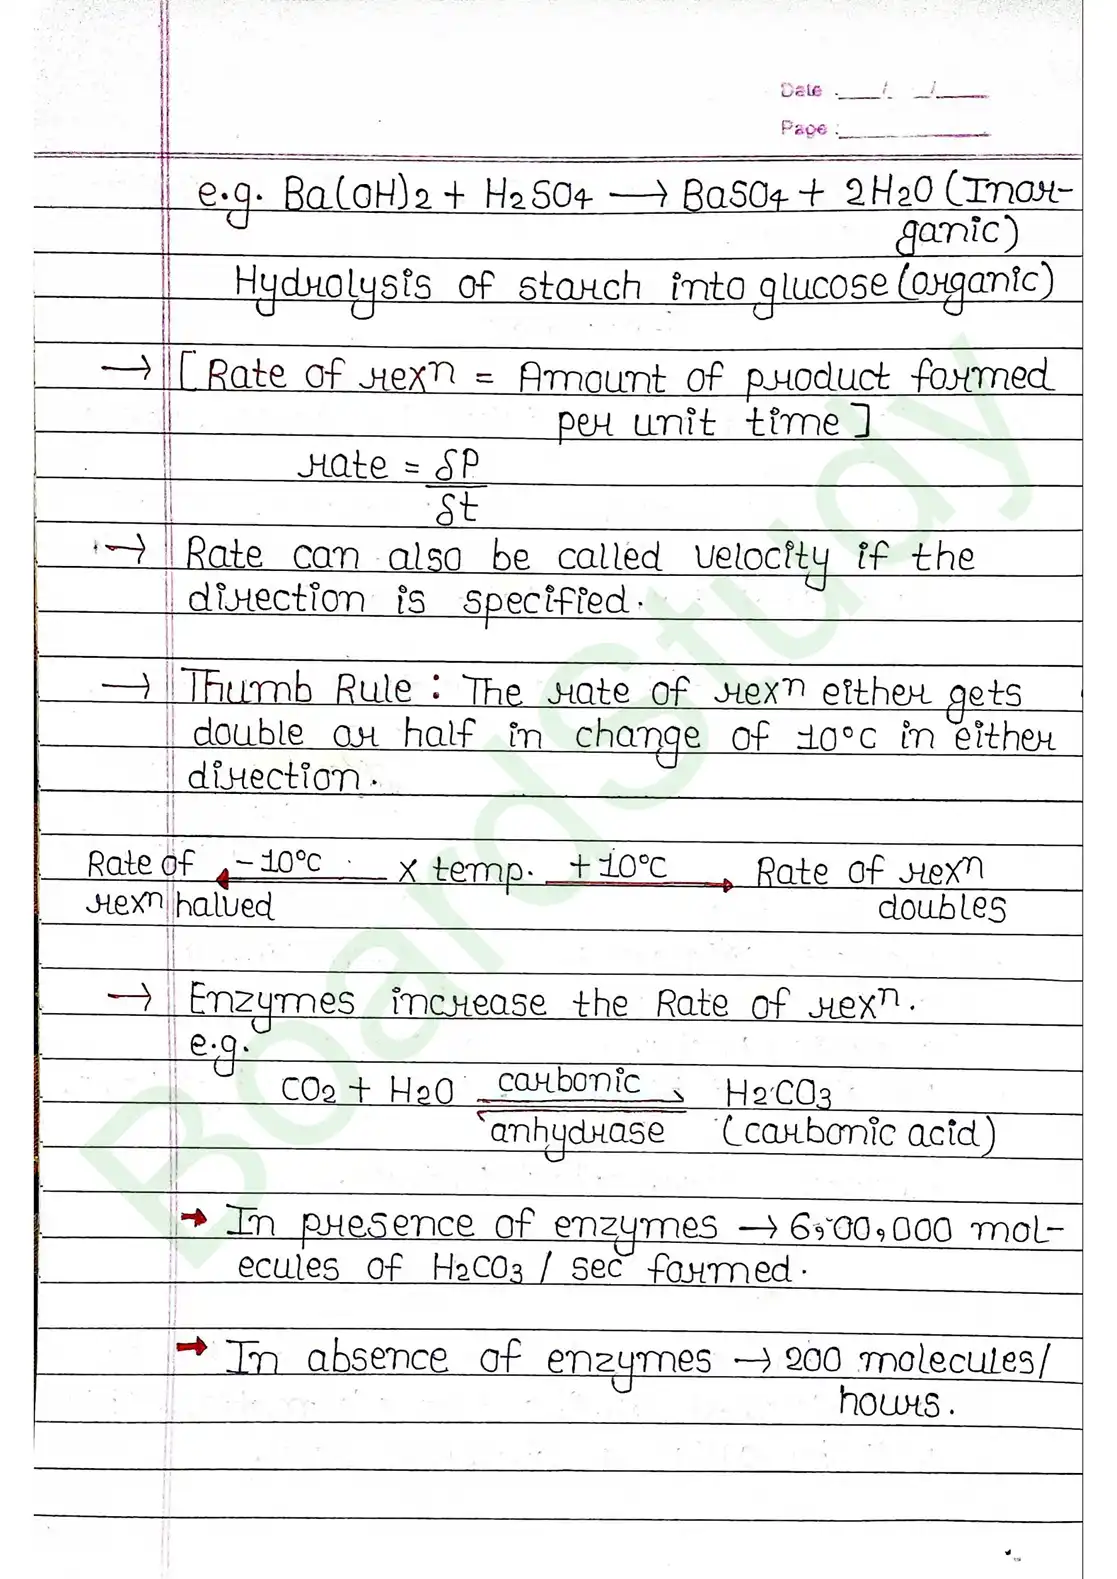 Date : __/__/__
Page :
e.g. Ba(OH)2 + H2SO4 → BaSO4 + 2H2O (Inor-
ganic)
Hydrolysis of starch into glucose (organic)
→ [Rate of rexⁿ = Amount of product formed
per unit time]
rate = δP
δt
→ Rate can also be called velocity if the
direction is specified.
→ Thumb Rule : The rate of rexⁿ either gets
double or half in change of 10°C in either
direction.
Rate of ← -10°C X temp. +10°C → Rate of rexⁿ
rexⁿ halved doubles
→ Enzymes increase the Rate of rexⁿ.
e.g.
CO2 + H2O carbonic ⇌ H2CO3
anhydrase (carbonic acid)
→ In presence of enzymes → 6,00,000 mol-
ecules of H2CO3 / sec formed.
→ In absence of enzymes → 200 molecules/
hours.
BoardStudy